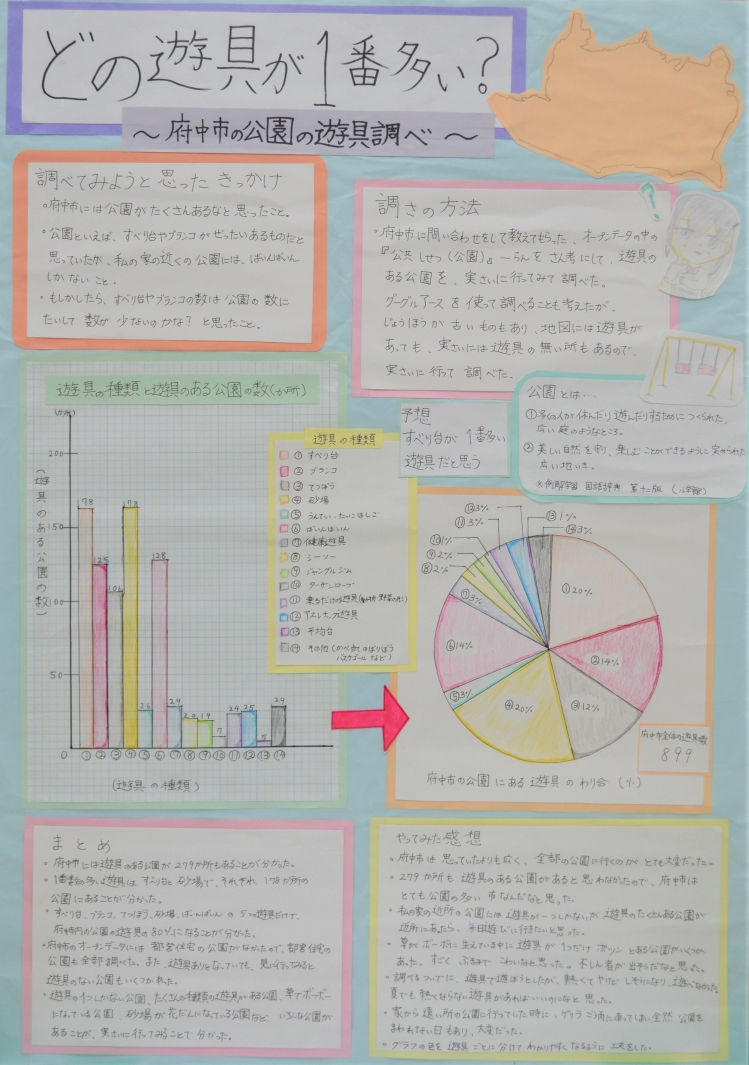 どの遊具が1番多い?
～府中市の公園の遊具調べ～
調べてみようと思ったきっかけ
・府中市には公園がたくさんあるなと思ったこと。
・公園といえば、すべり台やブランコがぜったいあるものだと
思っていたが、私の家の近くの公園には、ばいんばいん
しかないこと。
・もしかしたら、すべり台やブランコの数は公園の数に
たいして数が少ないのかな?と思ったこと。
調さの方法
・府中市に問い合わせをして教えてもらった、オープンデータの中の
『公共しせつ(公園)』一らんをさん考にして、遊具の
ある公園を、実さいに行ってみて調べた。
グーグルアースを使って調べることも考えたが、
じょうほうが古いものもあり、地図には遊具が
あっても、実さいには遊具の無い所もあるので、
実さいに行って調べた。
?
公園とは…
①多くの人が休んだり遊んだりするためにつくられた、
広い庭のようなところ。
②美しい自然を守り、楽しむことができるように定められた
広い地いき。
※例解学習国語辞典 第十二版(小学館)
予想
すべり台が1番多い
遊具だと思う
遊具の種類と遊具のある公園の数(か所)
(か所)
200
150
100
50
0
(遊具のある公園の数)
178
125
106
178
26
128
29
20
19
7
24
25
5
29
① ② ③ ④ ⑤ ⑥ ⑦ ⑧ ⑨ ⑩ ⑪ ⑫ ⑬ ⑭
(遊具の種類)
遊具の種類
①すべり台
②ブランコ
③てつぼう
④砂場
⑤うんてい、たいこはしご
⑥ばいんばいん
⑦健康遊具
⑧シーソー
⑨ジャングルジム
⑩ターザンロープ
⑪乗るだけの遊具
⑫アスレチック遊具
⑬平均台
⑭その他(かべ当て、のぼりぼう
バスケゴールなど)
①20%
②14%
③12%
④20%
⑤3%
⑥14%
⑦3%
⑧2%
⑨2%
⑩1%
⑪3%
⑫3%
⑬1%
⑭3%
府中市全体の遊具数
899
府中市の公園にある遊具のわり合(%)
まとめ
・府中市には遊具のある公園が279か所もあることが分かった。
・1番数の多い遊具はすべり台と砂場で、それぞれ178か所の
公園にあることが分かった。
・すべり台、ブランコ、てつぼう、砂場、ばいんばいんの5つの遊具だけで、
府中市内の公園の遊具の80%になることが分かった。
・府中市のオープンデータには都営住宅の公園がなかたので、都営住宅の
公園も全部調べた。また、遊具ありとなっていても、見に行ってみると
遊具のない公園もいくつかあった。
・遊具の1つしかない公園、たくさんの種類の遊具がある公園、草でボーボー
になっている公園、砂場が花だんになっている公園など、いろんな公園が
あることが、実さいに行ってみることで分かった。
やってみた感想
・府中市は思っていたよりも広く、全部の公園に行くのがとても大変だった。
・279か所も遊具のある公園があると思わなかたので、府中市は
とても公園の多い市なんだなと思った。
・私の家の近所の公園には遊具が一つしかないが、遊具のたくさんある公園が
近所にあったら、毎日遊びに行きたいと思った。
・草がボーボーに生えている中に遊具が1つだけポツンとある公園がいくつか
あった。すごくぶきみでこわいなと思った。不しん者が出そうだなと思った。
・調べるついでに、遊具で遊ぼうとしたが、熱くてやけどしそうになり、遊べなかった。
夏でも熱くならない遊具があればいいのになと思った。
・家から遠い所の公園に行っていた時に、ゲリラごう雨にあってしまい全然公園を
まわれない日もあり、大変だった。
・グラフの色を遊具ごとに分けてわかりやすくなるように工夫をした。